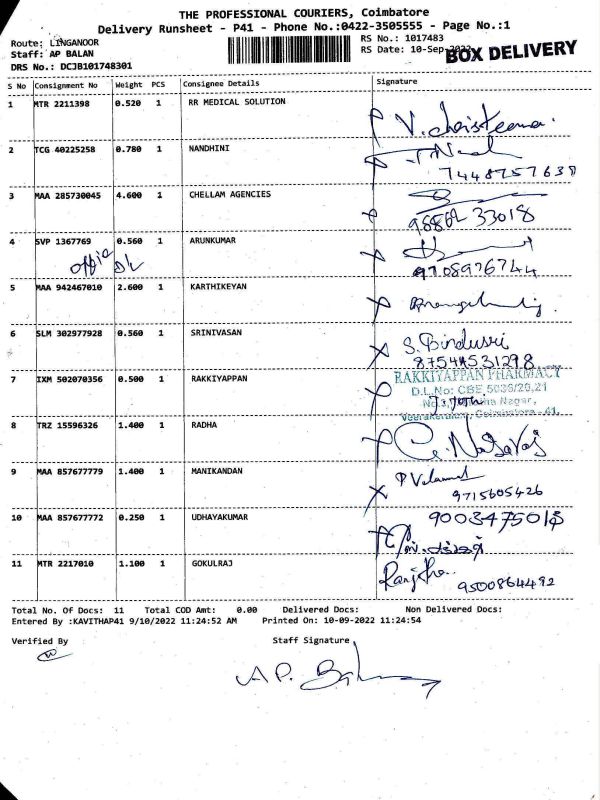 THE PROFESSIONAL COURIERS, Coimbatore
Delivery Runsheet - P41 - Phone No.:0422-3505555 - Page No.:1
Route: LINGANOOR
Staff: AP BALAN
DRS No.: DCJB101748301
RS No.: 1017483
RS Date: 10-Sep-2022
BOX DELIVERY
S No Consignment No Weight PCS Consignee Details Signature
1 MTR 2211398 0.520 1 RR MEDICAL SOLUTION
2 TCG 40225258 0.780 1 NANDHINI
7448757639
3 MAA 285730045 4.600 1 CHELLAM AGENCIES
98862 33018
4 SVP 1367769 0.560 1 ARUNKUMAR
9708976744
5 MAA 942467010 2.600 1 KARTHIKEYAN
6 SLM 302977928 0.560 1 SRINIVASAN S. Bindusri
8754531298
7 IXM 502070356 0.500 1 RAKKIYAPPAN
RAKKIYAPPAN PHARMACY
D.L.No: CBE 5036/20,21
Nagar,
Veerakeralam, Coimbatore - 41.
8 TRZ 15596326 1.400 1 RADHA
9 MAA 857677779 1.400 1 MANIKANDAN
9715605426
10 MAA 857677772 0.250 1 UDHAYAKUMAR 9003475018
11 MTR 2217010 1.100 1 GOKULRAJ Ranjitha
9500864492
Total No. Of Docs: 11 Total COD Amt: 0.00 Delivered Docs: Non Delivered Docs:
Entered By :KAVITHAP41 9/10/2022 11:24:52 AM Printed On: 10-09-2022 11:24:54
Verified By Staff Signature